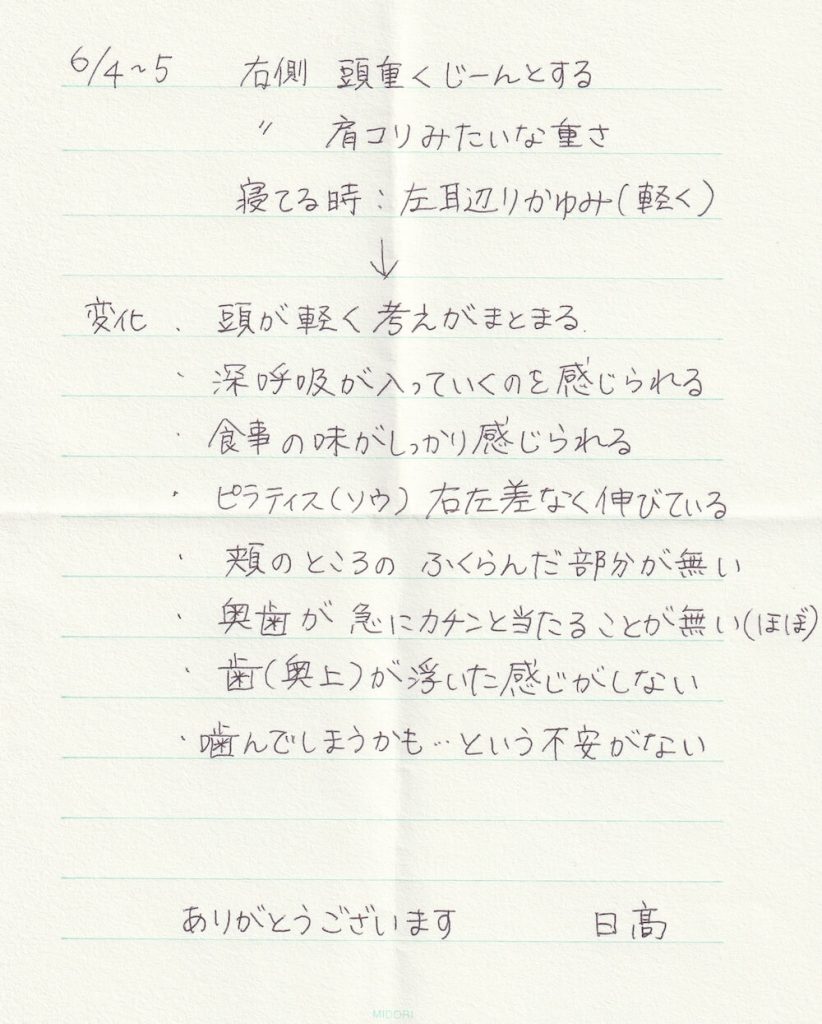 6/4~5 右側 頭重くじーんとする
〃 肩コリみたいな重さ
寝てる時：左耳辺りかゆみ(軽く)
↓
変化 ・頭が軽く考えがまとまる.
・深呼吸が入っていくのを感じられる
・食事の味がしっかり感じられる
・ピラティス(ソウ) 右左差なく伸びている
・頬のところの ふくらんだ部分が無い
・奥歯が急にカチンと当たることが無い(ほぼ)
・歯(奥上)が浮いた感じがしない
・噛んでしまうかも…という不安がない
ありがとうございます 日髙
MIDORI